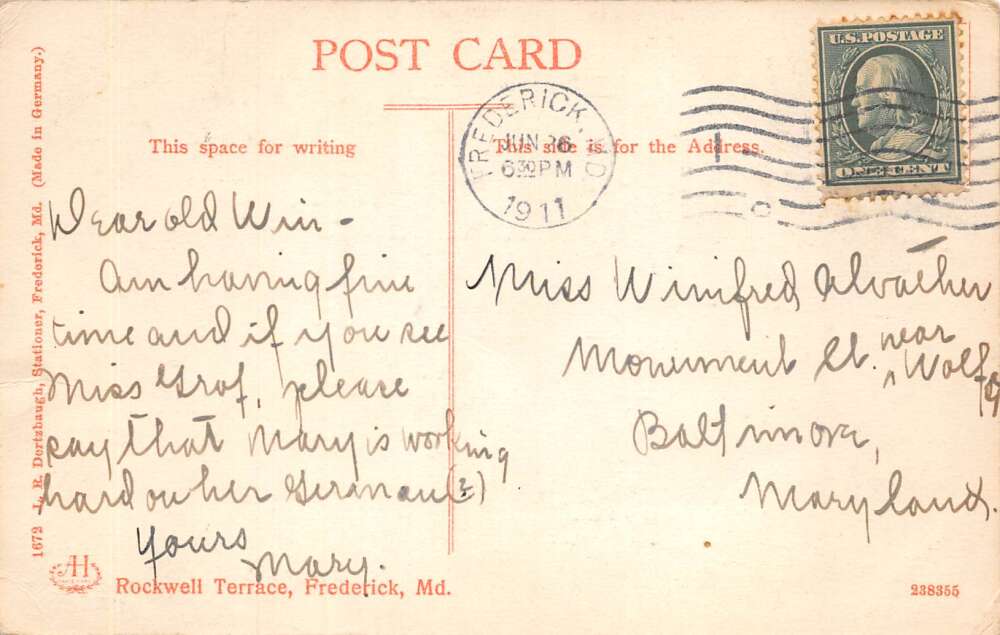 POST CARD
U.S.POSTAGE
ONE CENT
FREDERICK, MD
JUN 26
630PM
1911
This space for writing
This side is for the Address.
Dear old Win -
Am having fine
time and if you see
Miss Grof, please
say that Mary is working
hard on her German (?)
Yours
Mary.
Miss Winifred
Monument St. near Wolfe
Baltimore,
Maryland.
1672 L. R. Dertzbaugh, Stationer, Frederick, Md. (Made in Germany.)
AH
Rockwell Terrace, Frederick, Md.
238355